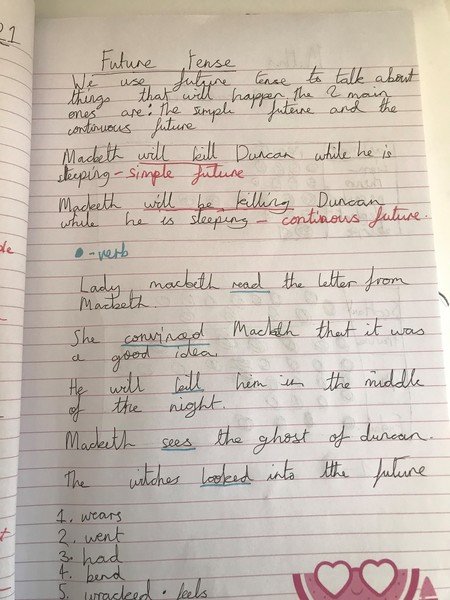 21
Future Tense
We use future tense to talk about
things that will happen the 2 main
ones are: the simple future and the
continuous future
Macbeth will kill Duncan while he is
sleeping - simple future
Macbeth will be killing Duncan
while he is sleeping - continuous future.
- verb
Lady macbeth read the letter from
Macbeth.
She convinsed Macbeth that it was
a good idea
He will kill him in the middle
of the night.
Macbeth sees the ghost of duncan.
The witches looked into the future
1. wears
2. went
3. had
4. bend
5. wracked . feels